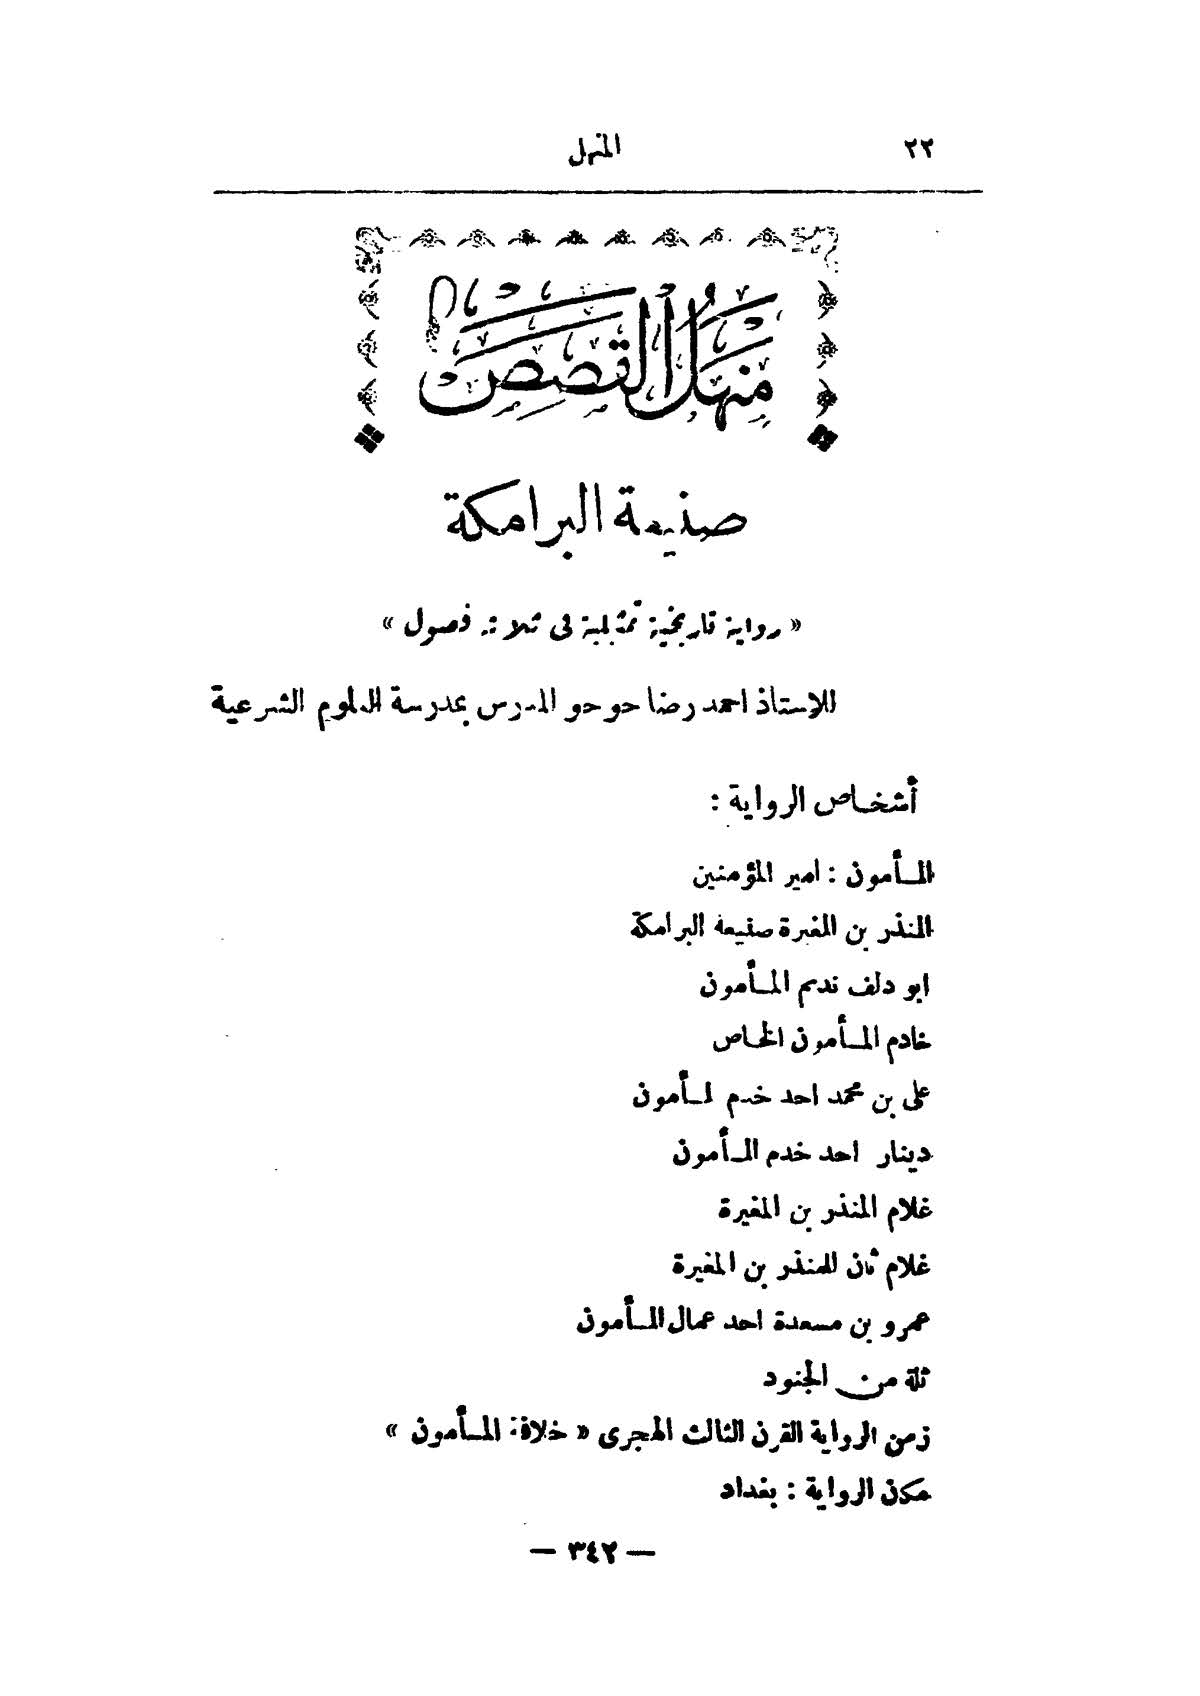 ٢٢ المنهل
منهل القصص
صنيعة البرامكة
« رواية تاريخية تمثيلية فى ثلاثة فصول »
للاستاذ احمد رضا حوحو المدرس بمدرسة العلوم الشرعية
أشخاص الرواية :
المـأمون : امير المؤمنين
المنذر بن المغيرة صنيعة البرامكة
ابو دلف نديم المـأمون
خادم المـأمون الخاص
على بن محمد احد خدم المـأمون
دينار احد خدم المـأمون
غلام المنذر بن المغيرة
غلام ثان للمنذر بن المغيرة
عمرو بن مسعدة احد عمال المـأمون
ثلة من الجنود
زمن الرواية القرن الثالث الهجرى « خلافة المـأمون »
مكان الرواية : بغداد
— ٣٤٢ —